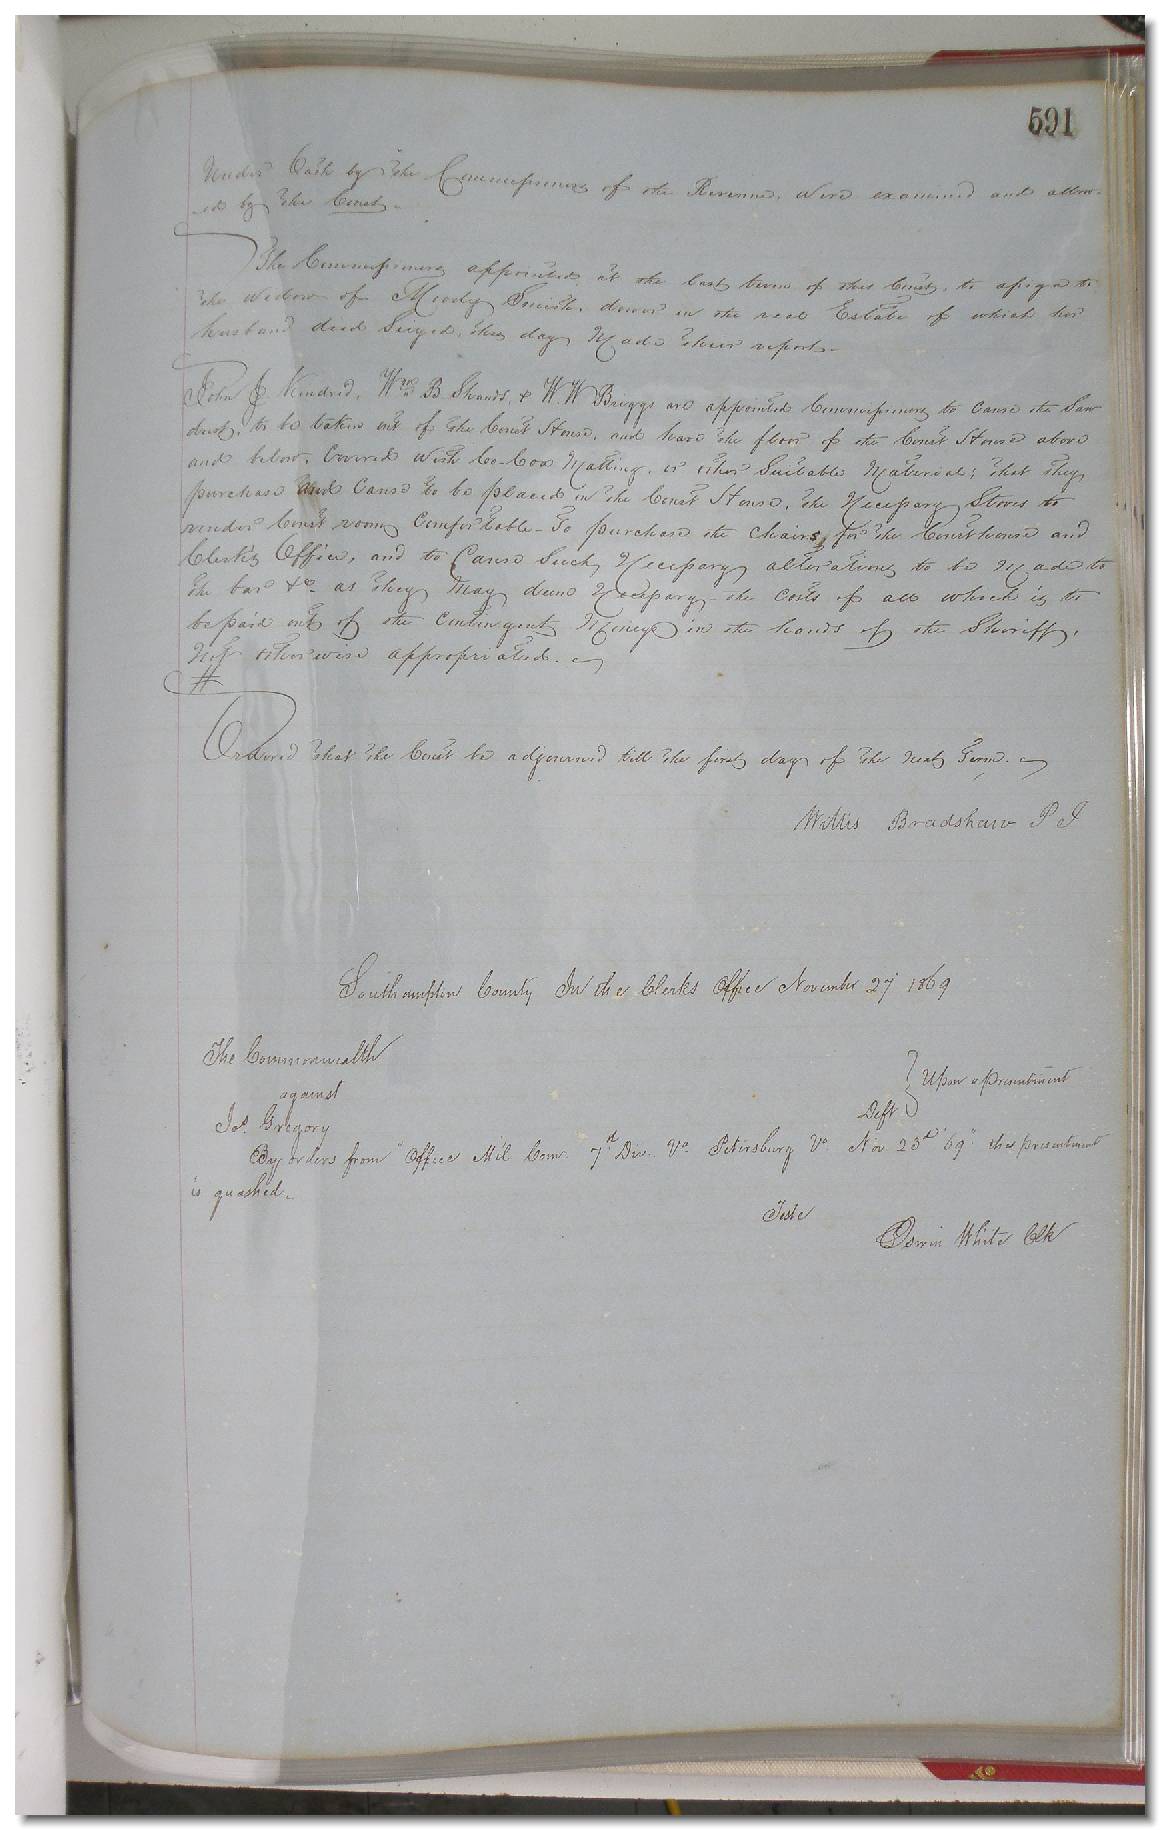 591
Under Oath by the Commissioners of the Revenue, were examined and allow-
-ed by the Court.
The Commissioners appointed at the last term of this Court, to assign to
the widow of Moody Smith, dower in the real Estate of which her
husband died Seized, this day Made their report.
John J. Kindred, Wm B. Shands, & W. W Briggs are appointed Commissioners to cause the Saw
dust, to be taken out of the Court House, and have the floor of the Court House above
and below, Covered with Co-Coa Matting, or other Suitable Material; that they
purchase and cause to be placed in the Court House, the Necessary Stoves to
render Court room Comfortable - To purchase the chairs, for the Courthouse and
Clerk's Office, and to Cause Such Necessary alterations to be Made to
the bar &c as they May deem Necessary - the Costs of all which is to
be paid out of the Contingent Money in the hands of the Sheriff,
Not otherwise appropriated.
Ordered that the Court be adjourned till the first day of the next Term.
Willis Bradshaw P J
Southampton County In the Clerks Office November 27 1869
The Commonwealth
against } Upon a Presentment
Jos. Gregory Deft
By orders from "Office Mil Com. 7th Div. Va. Petersburg Va. Nov 23rd '69" the presentment
is quashed.
Teste
Edwin White Clk